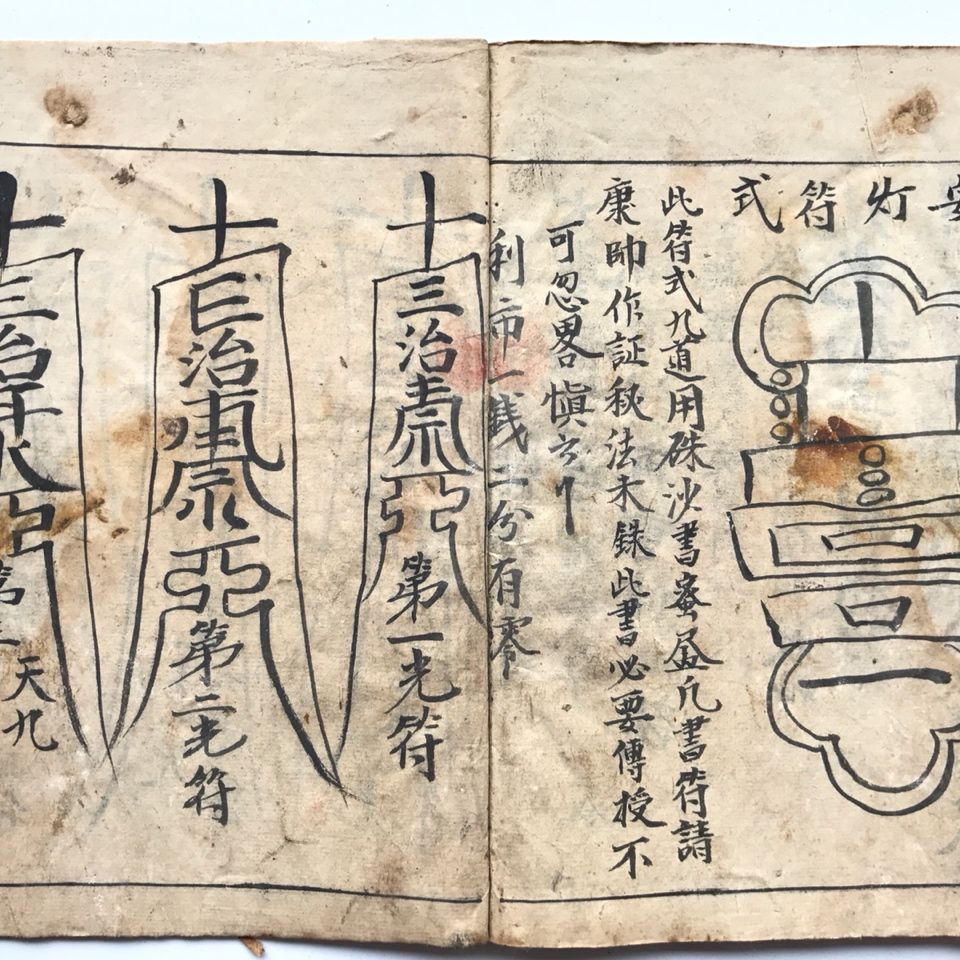 灯符式
此符式九道用硃沙書蚕盆凢書符請
康帥作証秘法未錄此書必要傳授不
可忽畧慎之
利市一錢二分有零
十三治亞
第一光符
十治亞
第二光符
十三治亞
第三
天九